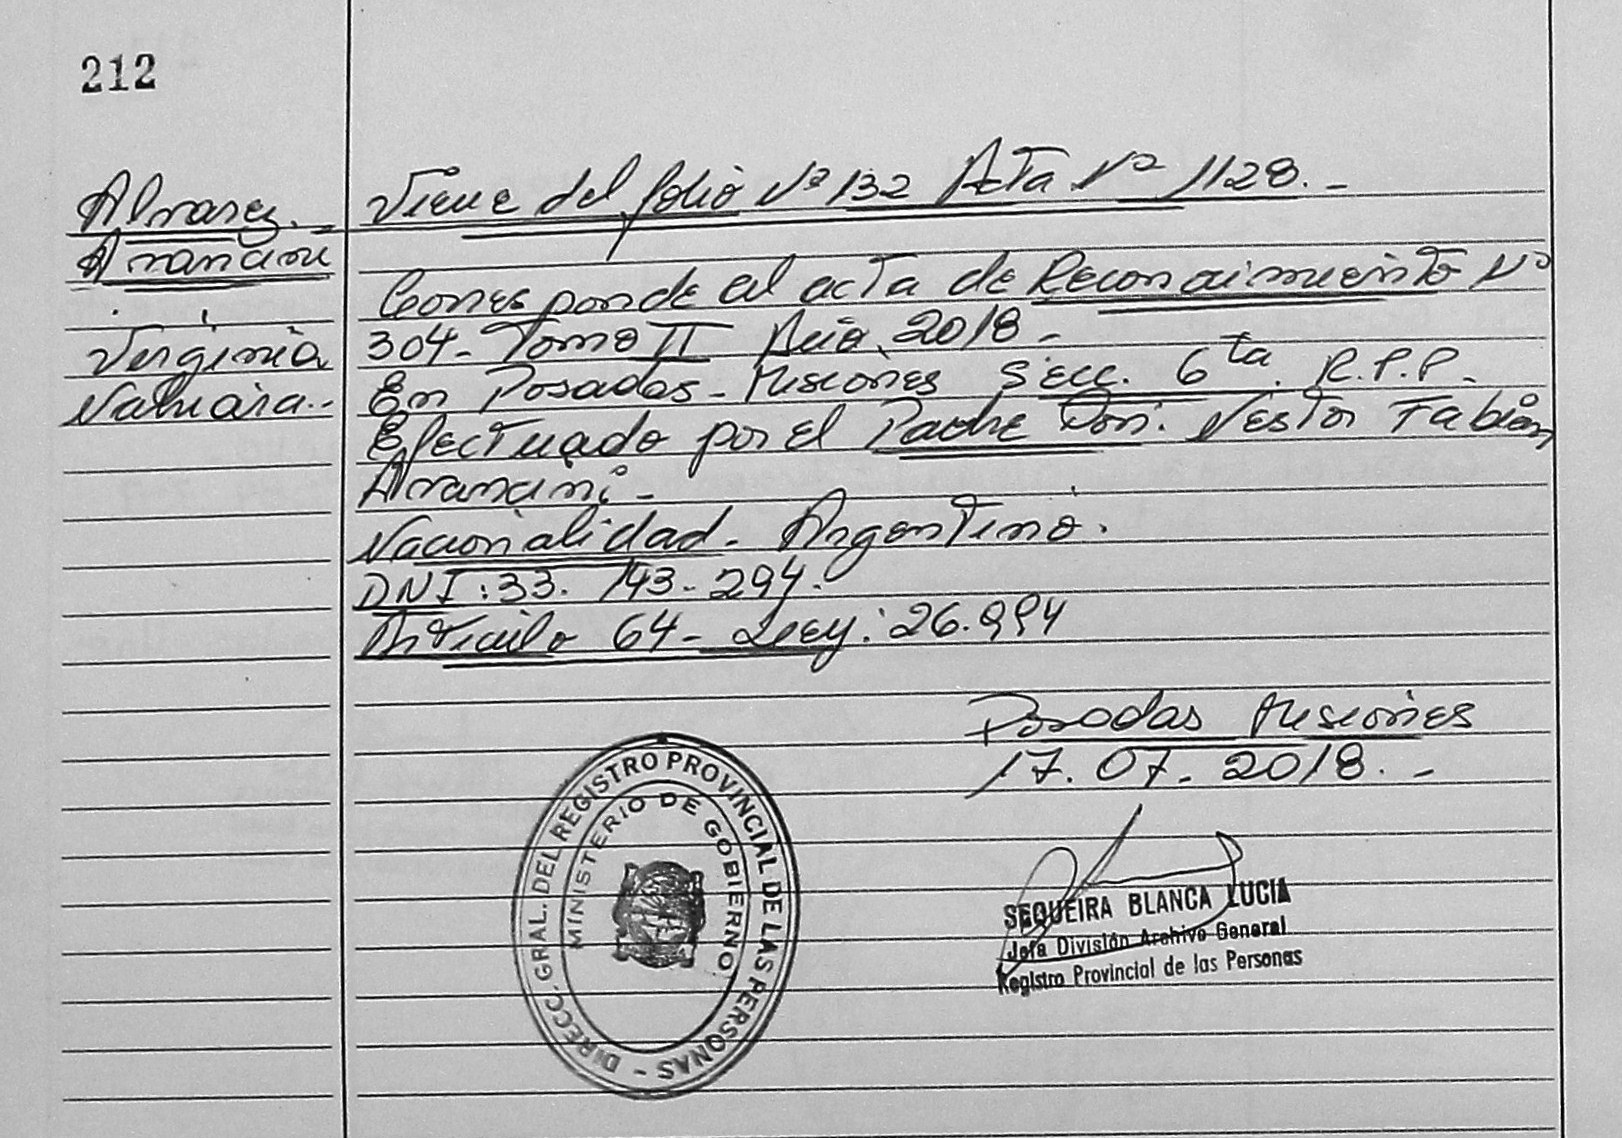 212
Alvarez.-
Arrancini
Virginia
Nahiara..-
Viene del folio Nº 132 Acta Nº 1128.-
Corresponde al acta de Reconocimiento Nº
304- Tomo II Año 2018-
En Posadas- Misiones Secc. 6ta. R.P.P.-
Efectuado por el Padre Don: Nestor Fabián
Arrancini-
Nacionalidad- Argentino.
DNI: 33. 143-294.
Articulo 64- Ley: 26.994
Posadas Misiones
17.07-2018.-
DIRECC. GRAL. DEL REGISTRO PROVINCIAL DE LAS PERSONAS -
MINISTERIO DE GOBIERNO
SEQUEIRA BLANCA LUCIA
Jefa División Archivo General
Registro Provincial de las Personas